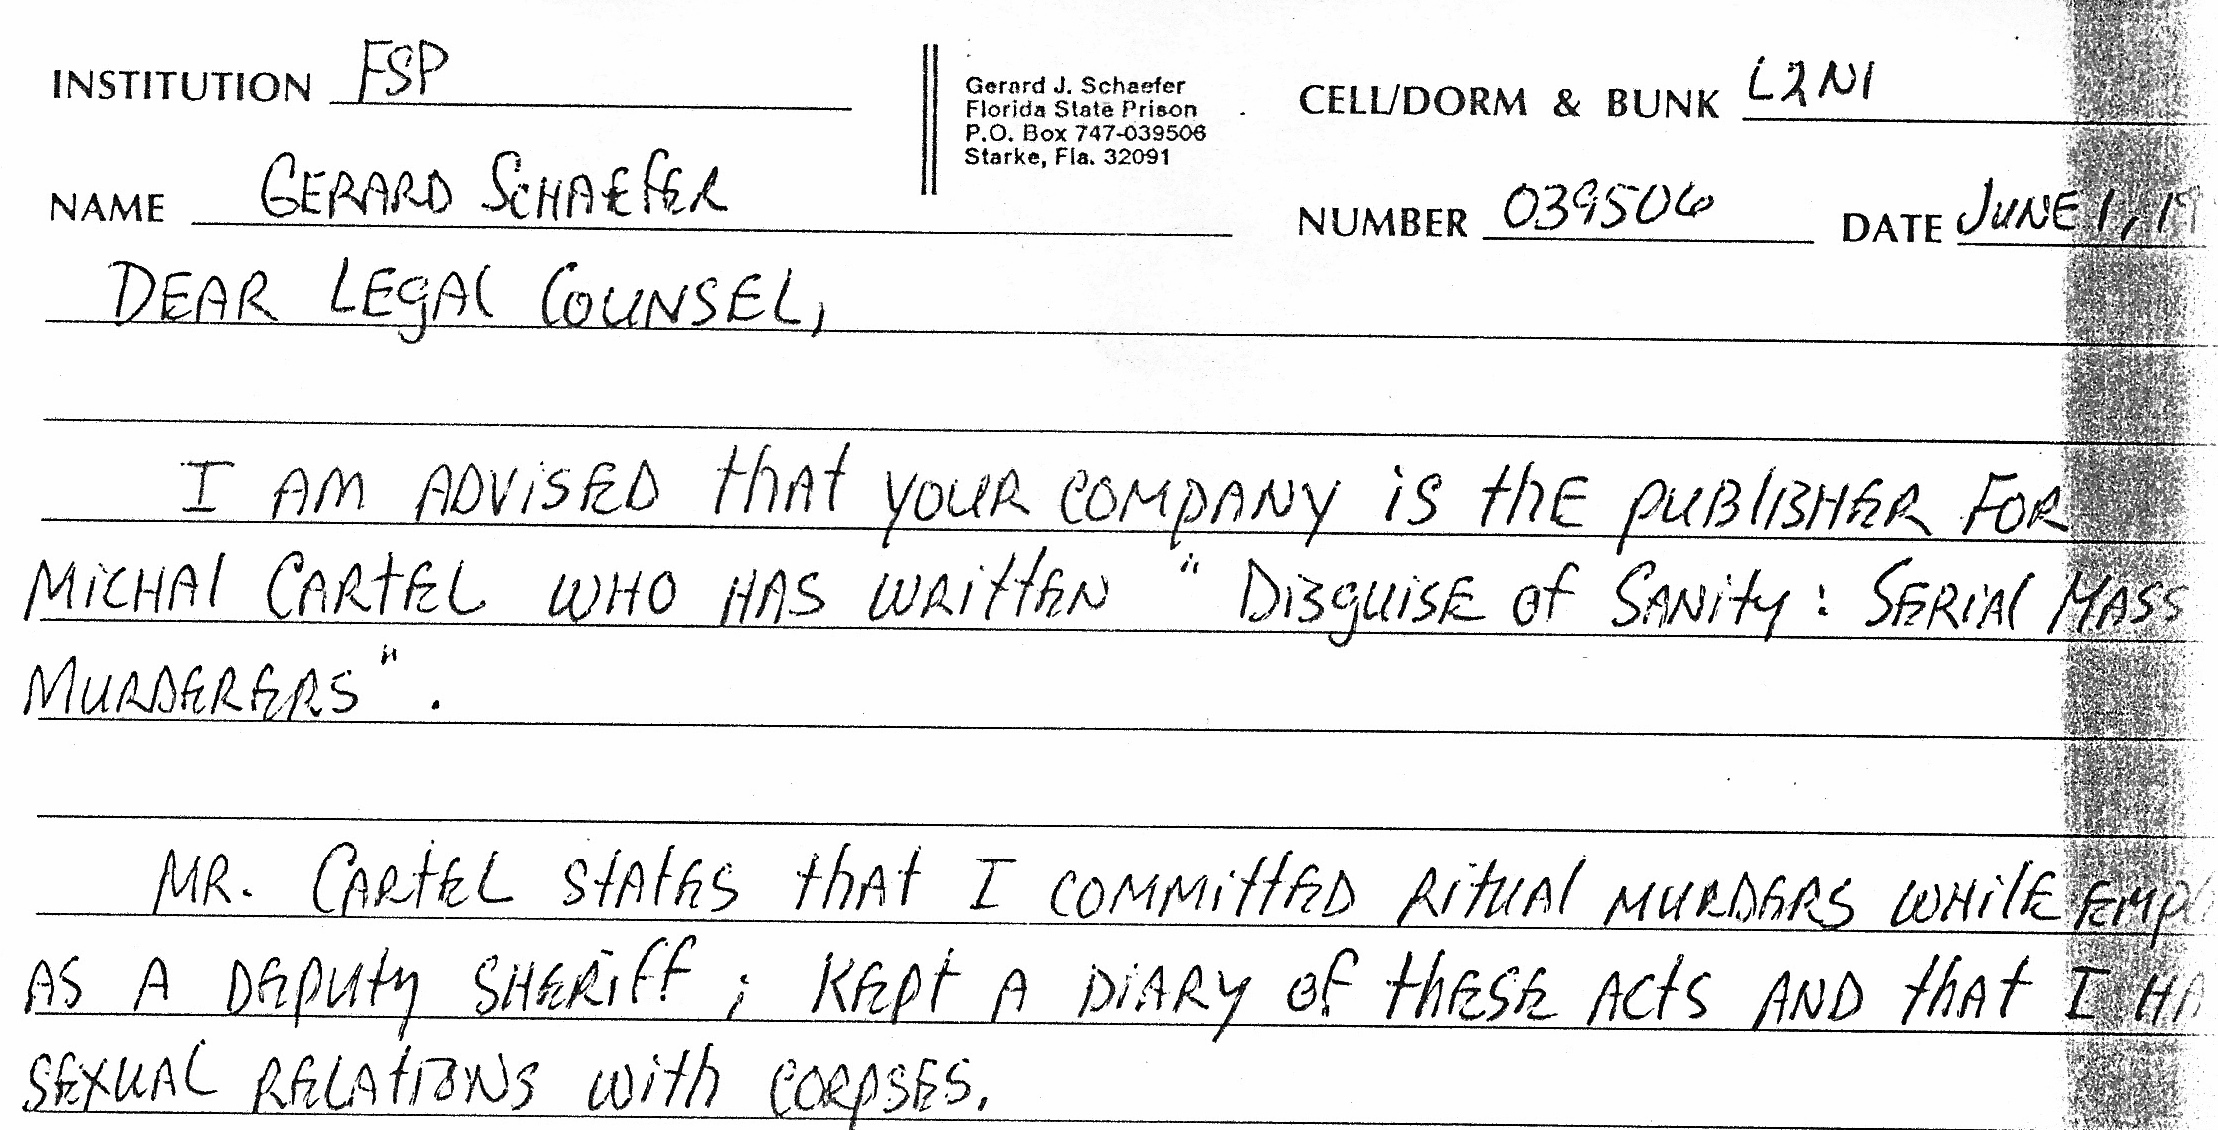 INSTITUTION FSP
Gerard J. Schaefer
Florida State Prison
P.O. Box 747-039506
Starke, Fla. 32091
CELL/DORM & BUNK L2N1
NAME GERARD SCHAEFER
NUMBER 039506 DATE JUNE 1, 19
DEAR LEGAL COUNSEL,
I AM ADVISED that YOUR COMPANY is thE PUBLISHER FOR
MICHAL CARtEL WHO HAS WRittEN "DISguISE of SANity: SERIAl MASS
MURDERERS".
MR. CARtEL StAtES thAt I COMMittED RitUAl MURDERS WHilE EMP
AS A DEPUty SHERiff; KEpt A DIARY of thESE ACtS AND that I HA
SEXUAL RELAtIONS with CORPSES.